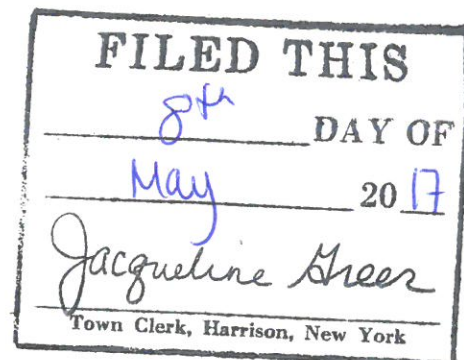 FILED THIS
8th DAY OF
May 2017
Jacqueline Greer
Town Clerk, Harrison, New York